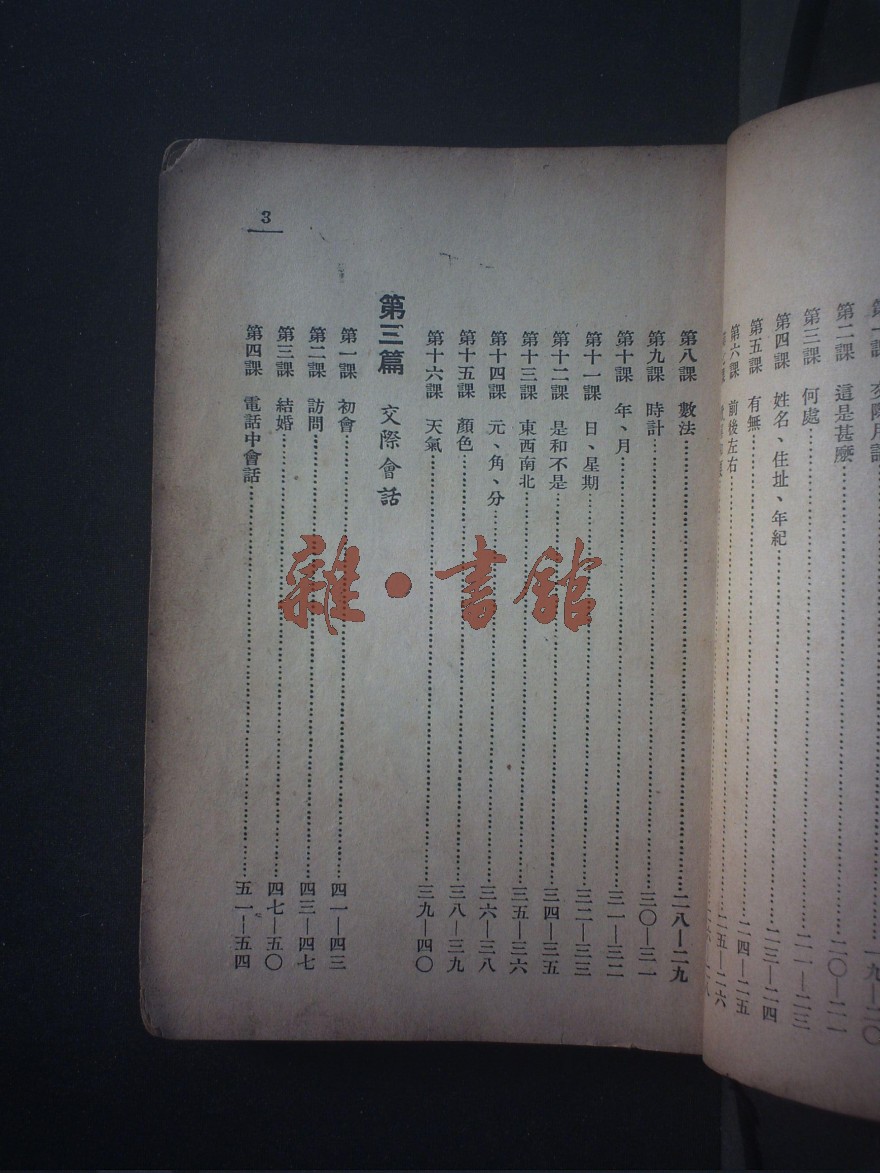 第二課 這是甚麼 二〇—二一
第三課 何處 二一—二三
第四課 姓名、住址、年紀 二三—二四
第五課 有無 二四—二五
第六課 前後左右 二五—二六
3
第八課 數法 二八—二九
第九課 時計 三〇—三一
第十課 年、月 三一—三二
第十一課 日、星期 三二—三三
第十二課 是和不是 三四—三五
第十三課 東西南北 三五—三六
第十四課 元、角、分 三六—三八
第十五課 顏色 三八—三九
第十六課 天氣 三九—四〇
第三篇 交際會話
第一課 初會 四一—四三
第二課 訪問 四三—四七
第三課 結婚 四七—五〇
第四課 電話中會話 五一—五四
雜·書館